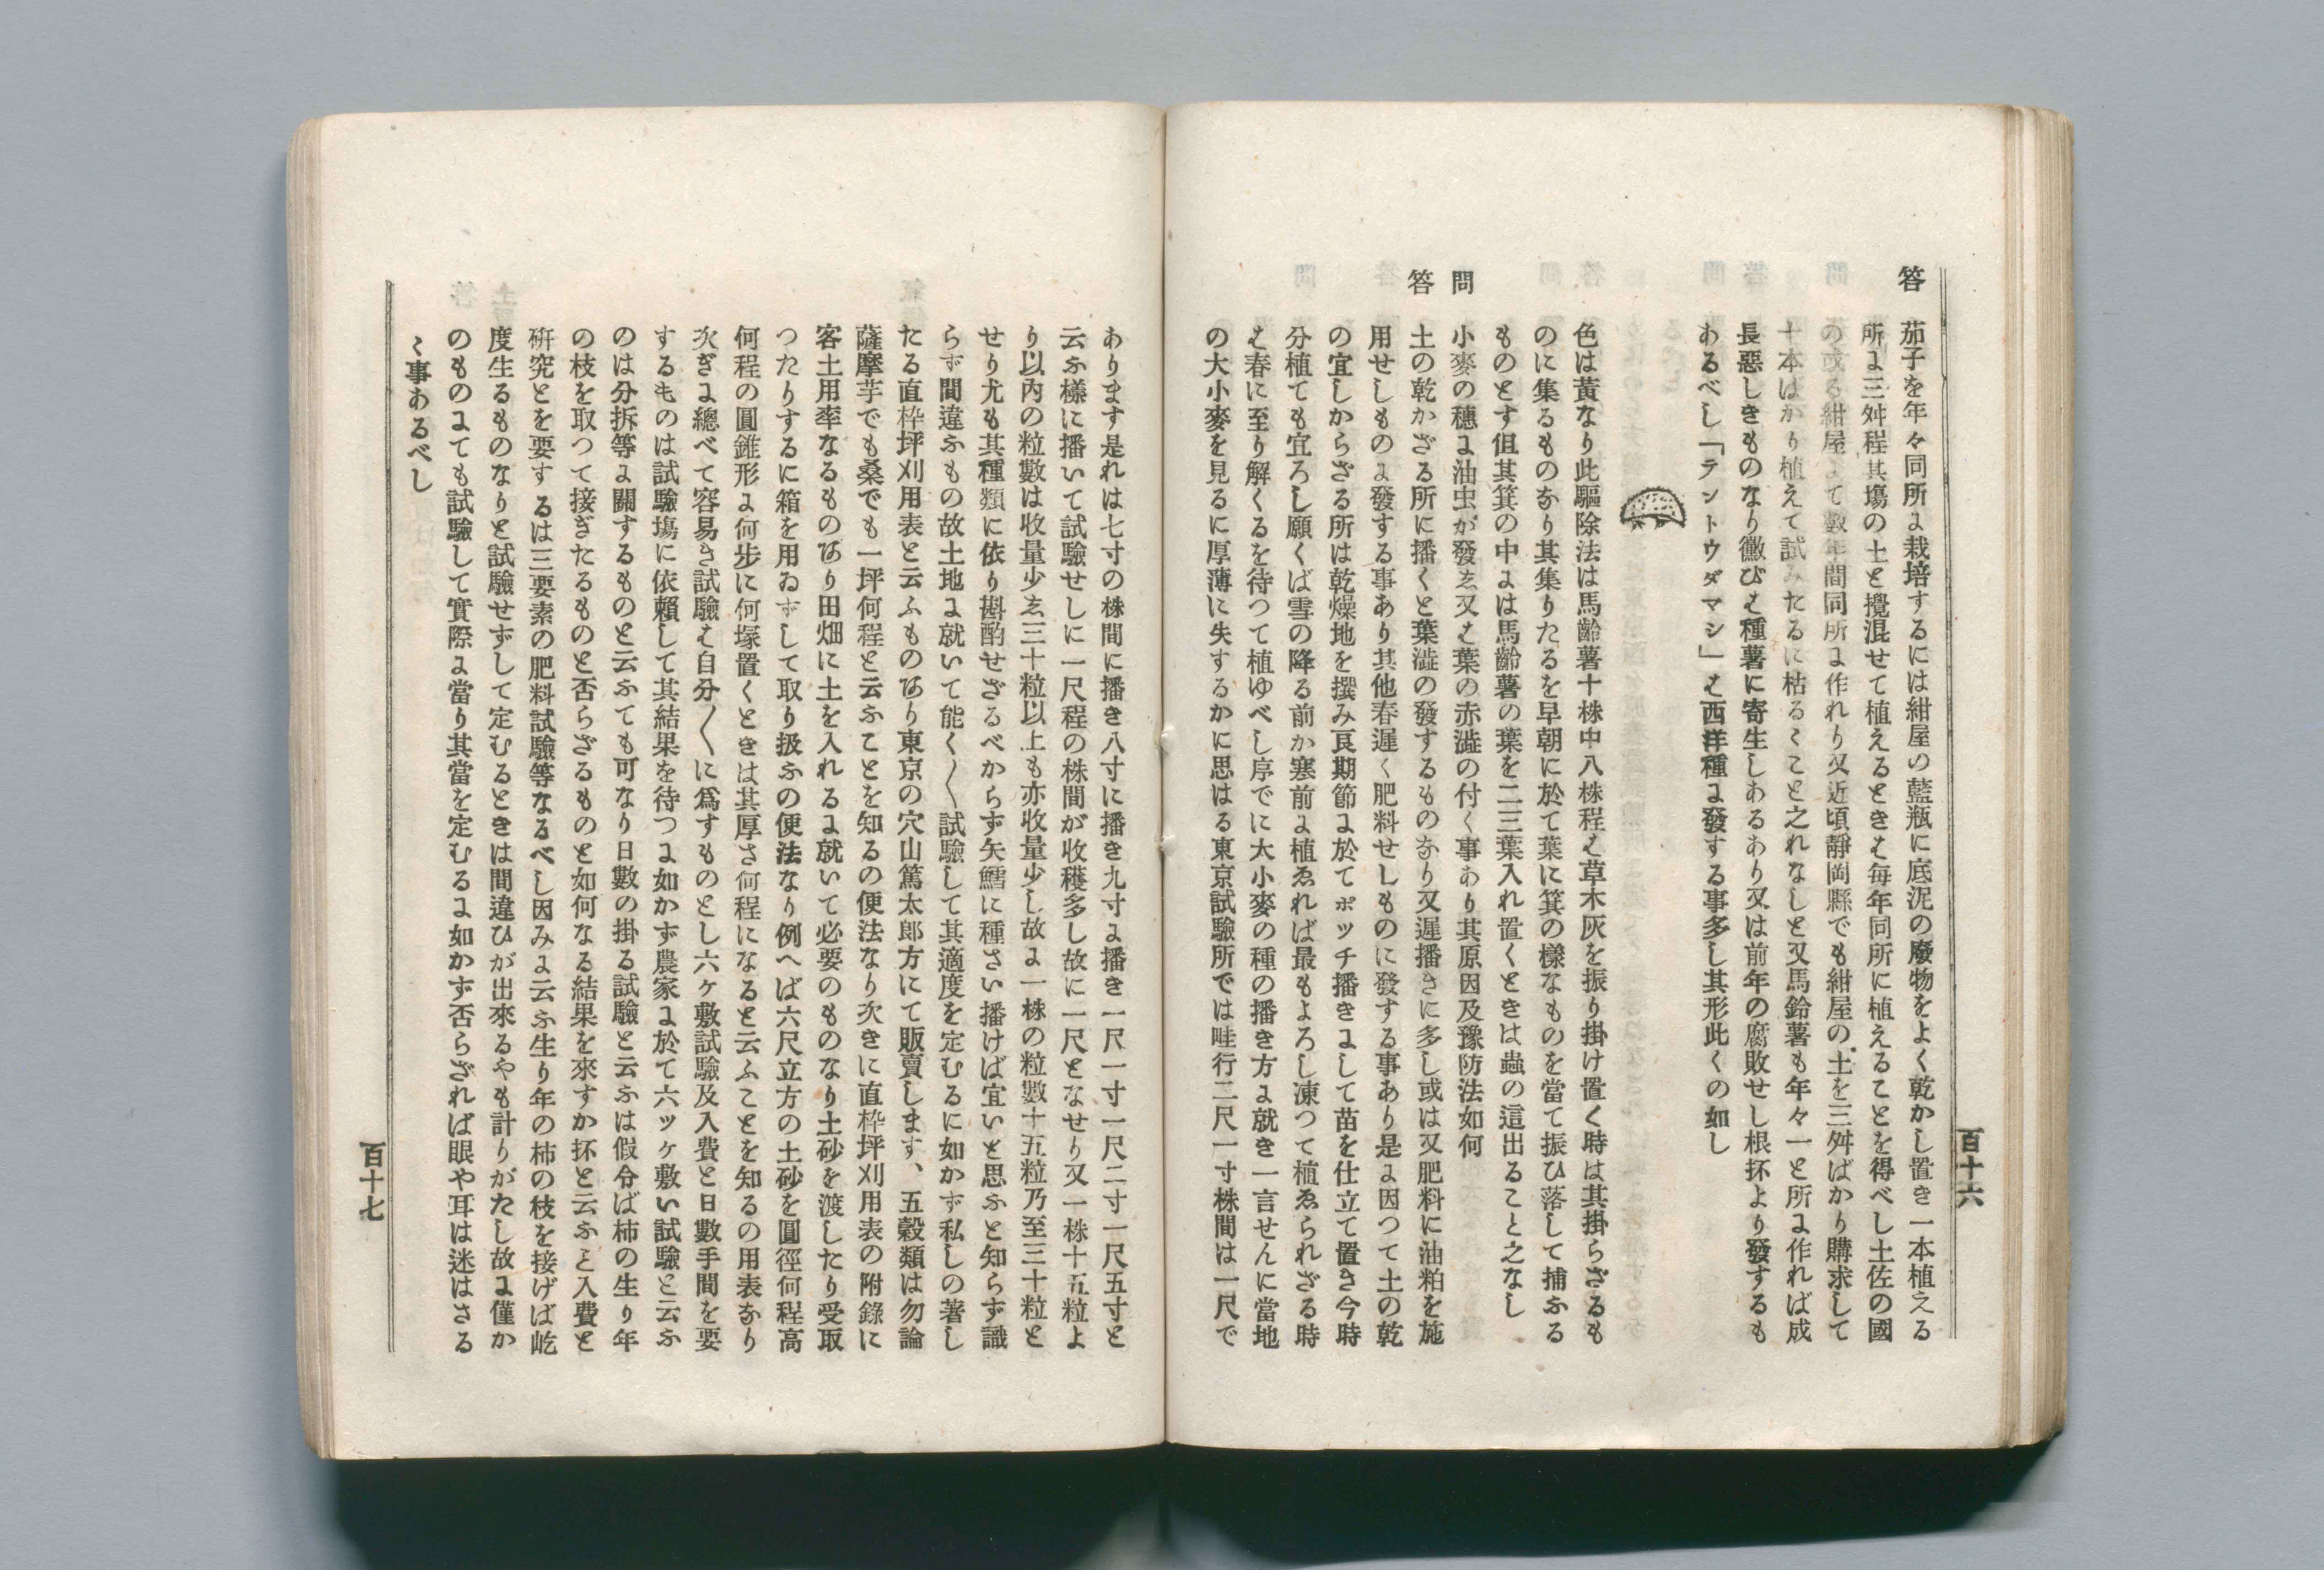 百十六
答　茄子を年々同所に栽培するには紺屋の藍瓶に底泥の廢物をよく乾かし置き一本植える
所に三舛程其塲の土と攪混せて植えるときは毎年同所に植えることを得べし土佐の國
の或る紺屋にて數年間同所に作れり又近頃靜岡縣でも紺屋の土を三舛ばかり購求して
十本ばかり植えて試みたるに枯るゝこと之れなしと又馬鈴薯も年々一と所に作れば成
長惡しきものなり黴びは種薯に寄生しあるあり又は前年の腐敗せし根抔より發するも
あるべし「テントウダマシ」は西洋種に發する事多し其形此くの如し
色は黃なり此驅除法は馬齡薯十株中八株程は草木灰を振り掛け置く時は其掛らざるも
のに集るものなり其集りたるを早朝に於て葉に箕の樣なものを當て振ひ落して捕ふる
ものとす但其箕の中には馬齡薯の葉を二三葉入れ置くときは蟲の這出ること之なし
問　小麥の穗に油虫が發し又は葉の赤澁の付く事あり其原因及豫防法如何
答　土の乾かざる所に播くと葉澁の發するものなり又遲播きに多し或は又肥料に油粕を施
用せしものに發する事あり其他春遲く肥料せしものに發する事あり是に因つて土の乾
の宜しからざる所は乾燥地を撰み良期節に於てポッチ播きにして苗を仕立て置き今時
分植ても宜ろし願くば雪の降る前か寒前に植ゑれば最もよろし凍つて植ゑられざる時
は春に至り解くるを待つて植ゆべし序でに大小麥の種の播き方に就き一言せんに當地
の大小麥を見るに厚薄に失するかに思はる東京試驗所では畦行二尺一寸株間は一尺で
あります是れは七寸の株間に播き八寸に播き九寸に播き一尺一寸一尺二寸一尺五寸と
云ふ樣に播いて試驗せしに一尺程の株間が收穫多し故に一尺となせり又一株十五粒よ
り以內の粒數は收量少し三十粒以上も亦收量少し故に一株の粒數十五粒乃至三十粒と
せり尤も其種類に依り斟酌せざるべからず矢鱈に種さい播けば宜いと思ふと知らず識
らず間違ふもの故土地に就いて能く〱試驗して其適度を定むるに如かず私しの著し
たる直枠坪刈用表と云ふものあり東京の穴山篤太郎方にて販賣します、五穀類は勿論
薩摩芋でも桑でも一坪何程と云ふことを知るの便法なり次きに直枠坪刈用表の附錄に
客土用率なるものあり田畑に土を入れるに就いて必要のものなり土砂を渡したり受取
つたりするに箱を用ゐずして取り扱ふの便法なり例へば六尺立方の土砂を圓徑何程高
何程の圓錐形に何步に何塚置くときは其厚さ何程になると云ふことを知るの用表なり
次ぎに總べて容易き試驗は自分〱に爲すものとし六ヶ敷試驗及入費と日數手間を要
するものは試驗塲に依賴して其結果を待つに如かず農家に於て六ッヶ敷い試驗と云ふ
のは分拆等に關するものと云ふても可なり日數の掛る試驗と云ふは假分ば柿の生り年
の枝を取つて接ぎたるものと否らざるものと如何なる結果を來すか抔と云ふと入費と
硏究とを要するは三要素の肥料試驗等なるべし因みに云ふ生り年の柿の枝を接げば屹
度生るものなりと試驗せずして定むるときは間違ひが出來るやも計りがたし故に僅か
のものにても試驗して實際に當り其當を定むるに如かず否らざれば眼や耳は迷はさる
ゝ事あるべし
百十七